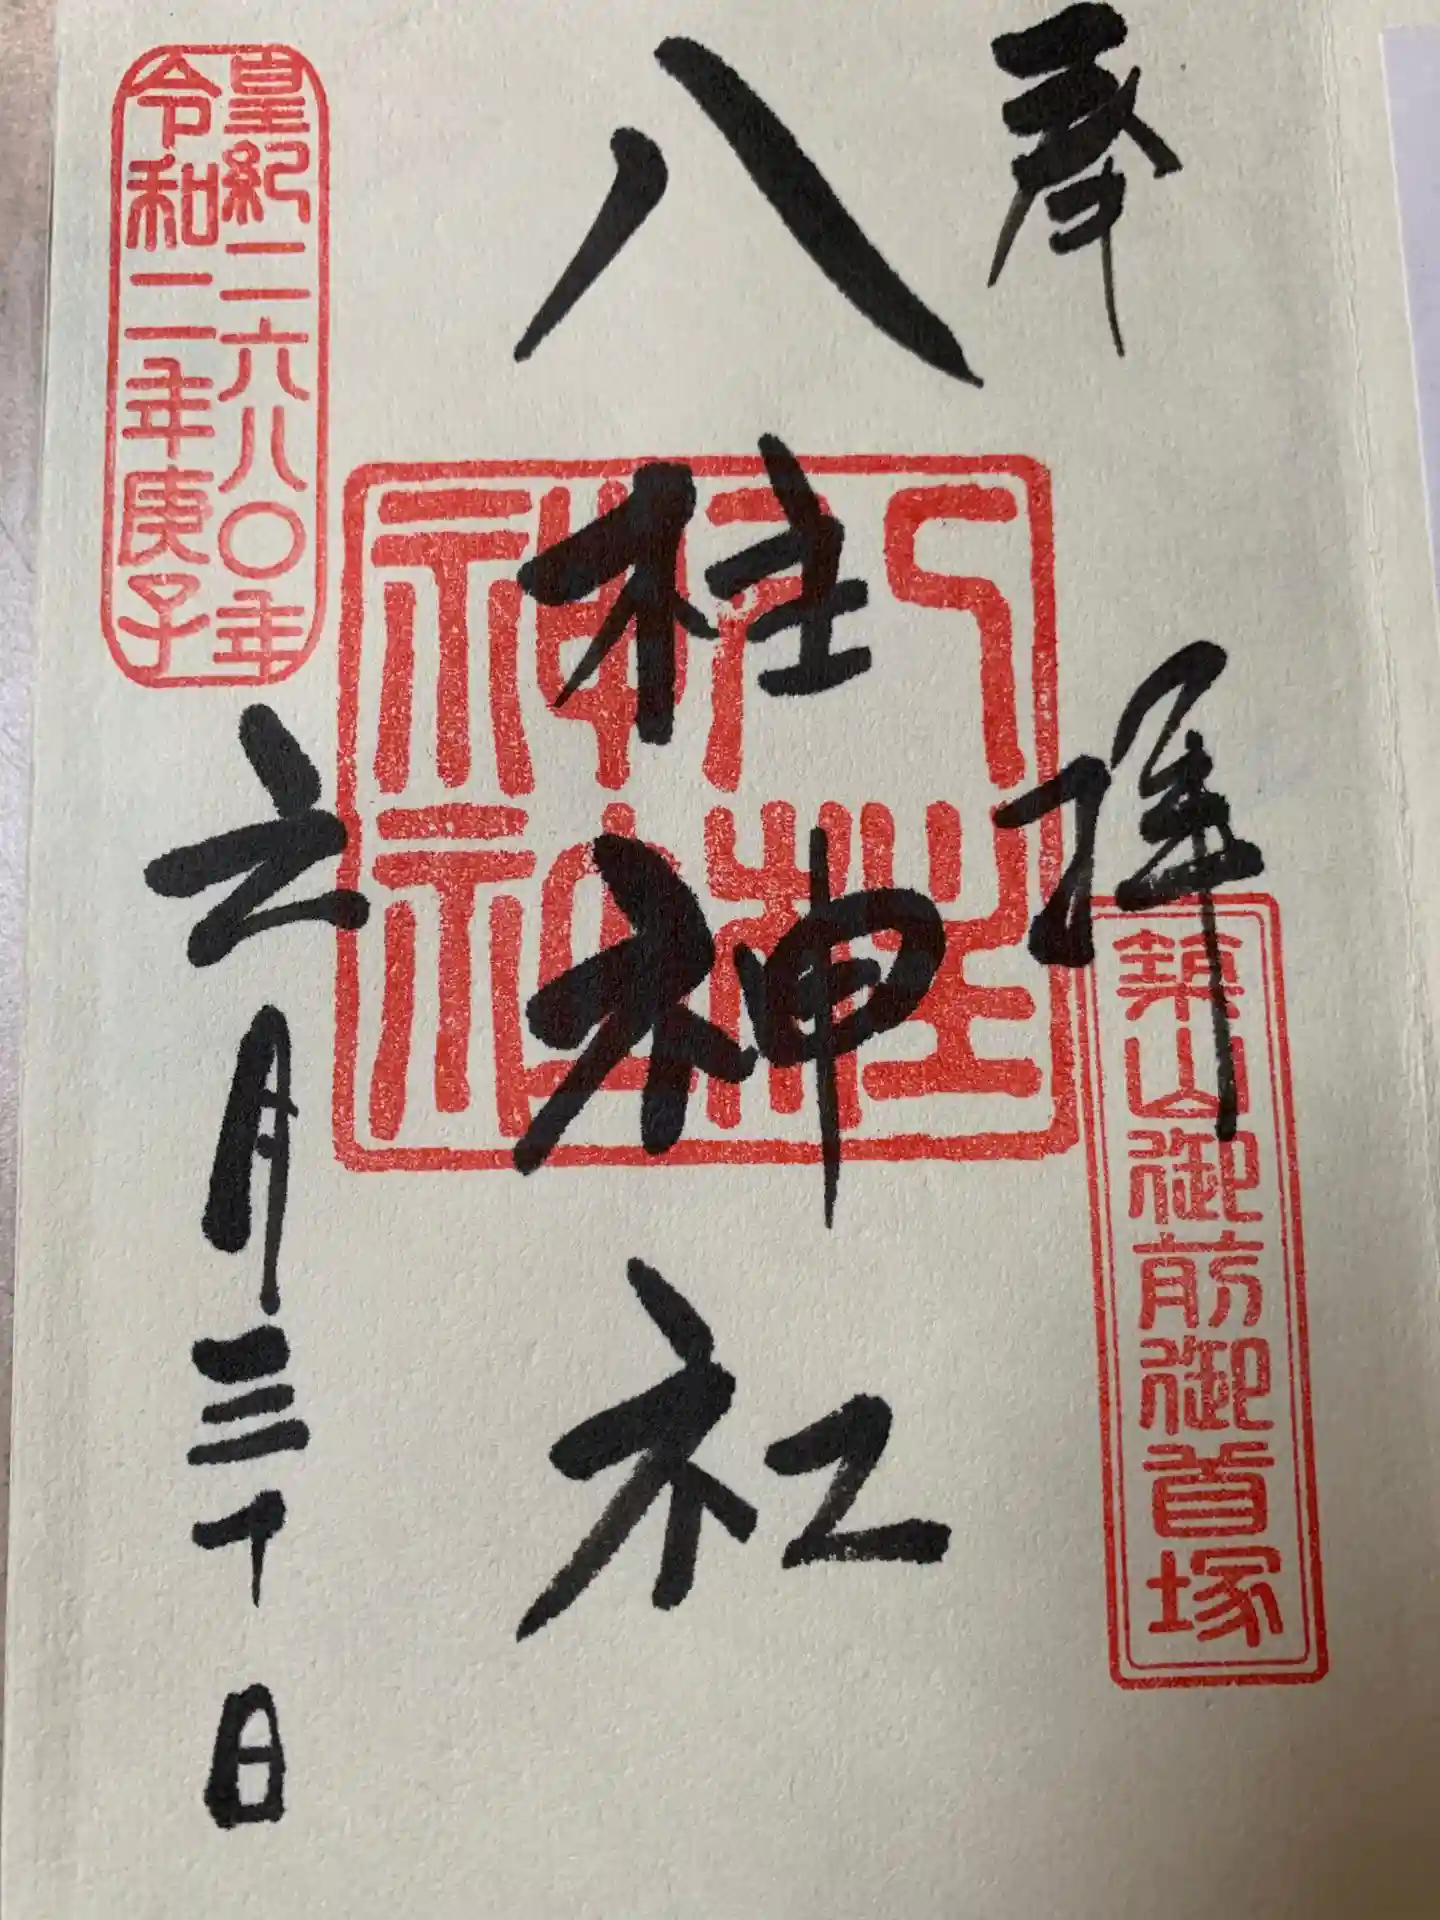 奉拝
築山御前御首塚
八柱神社
八柱
神社
皇紀二六八〇年
令和二年庚子
六月三十日